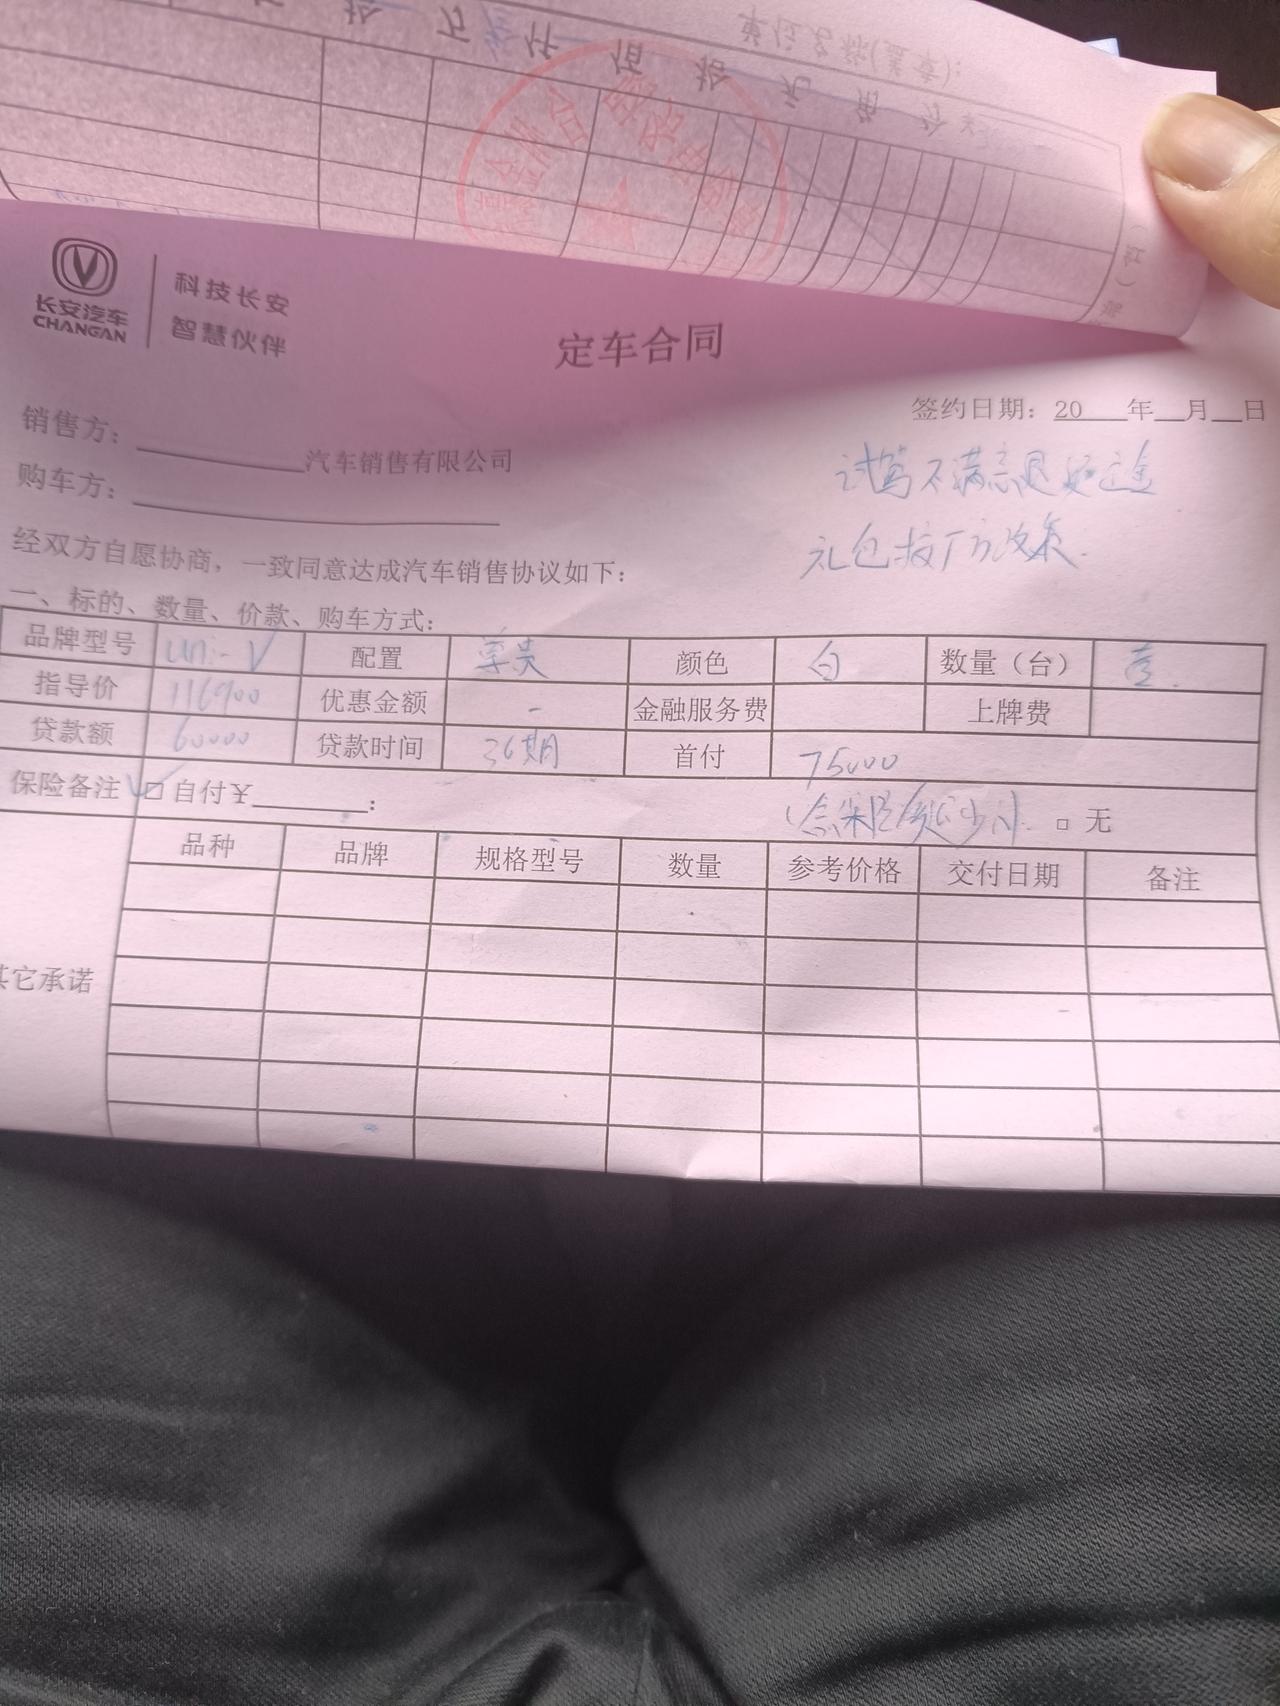 单位名称(盖章):
拾 万 仟 佰 拾 元 角 分
长安汽车
CHANGAN
科技长安
智慧伙伴
定车合同
签约日期：20 年 月 日
销售方： 汽车销售有限公司
购车方：
试驾不满意退定金
礼包按厂方政策
经双方自愿协商，一致同意达成汽车销售协议如下：
一、标的、数量、价款、购车方式：
品牌型号 uni-V 配置 尊贵 颜色 白 数量（台） 壹
指导价 116900 优惠金额 - 金融服务费 上牌费
贷款额 60000 贷款时间 36期 首付 75000
保险备注 ☑ 自付￥ ； □ 无
品种 品牌 规格型号 数量 参考价格 交付日期 备注
其它承诺